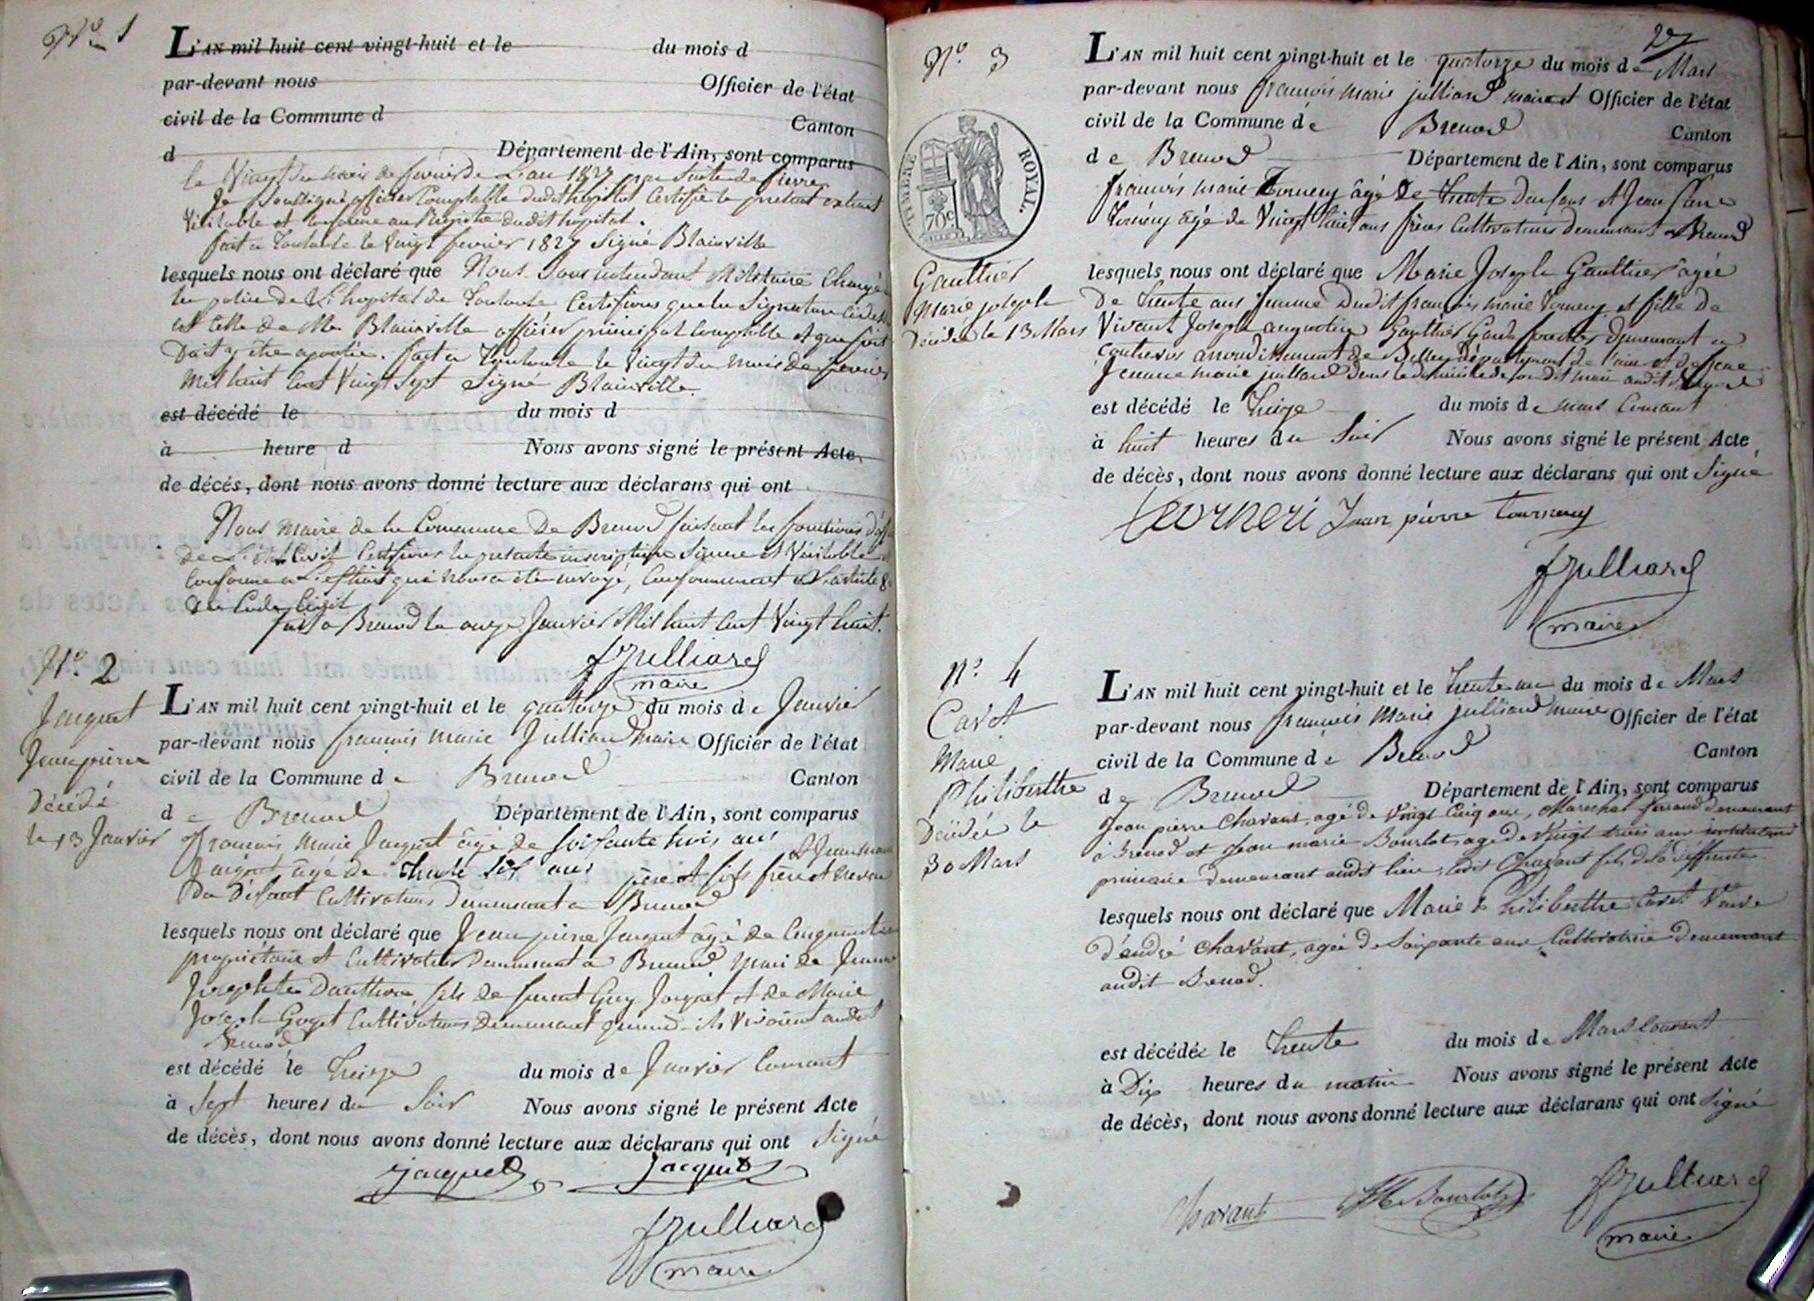 N° 1
L'AN mil huit cent vingt-huit et le du mois d
par-devant nous Officier de l'état
civil de la Commune d Canton
d Département de l'Ain, sont comparus
le Vingt du mois de février de L'an 1827 par suite de fievre
Je soussigné officier Comptable dudit hopital Certifie le présent extrait
Véritable et conforme au Registre dudit hopital.
fait a Toulouse le Vingt fevrier 1827 Signé Blainville
lesquels nous ont déclaré que Nous Sous intendant Militaire Chargé
la police de L'hopital de Certifions que la Signature
est Celle de Mr Blainville officier principal Comptable et que foi
Doit y être ajoutée. fait a le Vingt du mois de fevrier
Mil huit Cent Vingt Sept Signé Blainville.
est décédé le du mois d
à heure d Nous avons signé le présent Acte
de décès, dont nous avons donné lecture aux déclarans qui ont
Nous Maire de la Commune De Brenod faisant les fonctions
De L'état Civil Certifions la présente inscription Sincere et Véritable
Conforme a L'extrait qui nous a été envoyé, Conformément a L'article
du Code Civil
fait a Brenod le onze Janvier Mil huit Cent Vingt huit.
fJulliard
maire
N° 2
Jacquet
Jean pierre
Décédé
le 13 Janvier
L'AN mil huit cent vingt-huit et le quatorze du mois de Janvier
par-devant nous francois marie Julliard maire Officier de l'état
civil de la Commune de Brenod Canton
de Brenod Département de l'Ain, sont comparus
francois Marie Jacquet âgé de Soixante trois ans
et Jean
Jacquet âgé de trente Six ans père et fils frère et neveu
Du Défunt Cultivateurs Demeurant a Brenod
lesquels nous ont déclaré que Jean pierre Jacquet âgé de Cinquante
propriétaire et Cultivateur Demeurant a Brenod Mari de Jeanne
Josephte Dauthon, fils de furent Guy Jacquet et de Marie
Joseph Goyet Cultivateurs Demeurant quand ils Vivoient audit
Brenod
est décédé le treize du mois de Janvier Courant
à Sept heures du Soir Nous avons signé le présent Acte
de décès, dont nous avons donné lecture aux déclarans qui ont Signé
jacquet jacquet
fJulliard
maire
27
N° 3
TIMBRE ROYAL.
70c
Gaulthier
Marie joseph
Décédée le 13 Mars
L'AN mil huit cent vingt-huit et le quatorze du mois de Mars
par-devant nous francois marie julliard maire et Officier de l'état
civil de la Commune de Brenod Canton
de Brenod Département de l'Ain, sont comparus
francois marie Tornery âgé de trente Deux ans et Jean pierre
Tornery âgé de Vingt huit ans frères Cultivateurs demeurant a Brenod
lesquels nous ont déclaré que Marie Joseph Gaulthier agée
De trente ans femme Dudit francois marie Tornery et fille de
Vivant Joseph augustin Gaulthier Garde forestier Demeurant a
arrondissement de Belley département de l'ain et de feue
Jeanne marie julliard dans le domicile de son dit mari audit Brenod
est décédé le treize du mois de mars Courant
à huit heures du Soir Nous avons signé le présent Acte
de décès, dont nous avons donné lecture aux déclarans qui ont Signé
torneri Jean pierre tornery
fJulliard
maire
N° 4
Cavet
Marie
Philiberthe
Décédée le
30 Mars
L'AN mil huit cent vingt-huit et le trente un du mois de Mars
par-devant nous francois Marie Julliard maire Officier de l'état
civil de la Commune de Brenod Canton
de Brenod Département de l'Ain, sont comparus
Jean pierre Chavant, agé de Vingt Cinq ans, Marechal ferrand demeurant
à Brenod et Jean marie Bourlot, agé de Vingt trois ans instituteur
primaire demeurant audit lieu, ledit Chavant fils de la défunte
lesquels nous ont déclaré que Marie Philiberthe Cavet Veuve
d'andré Chavant, agée de Soixante ans Cultivatrice demeurant
audit Brenod.
est décédée le trente du mois de Mars Courant
à Dix heures du matin Nous avons signé le présent Acte
de décès, dont nous avons donné lecture aux déclarans qui ont Signé
Chavant JM Bourlot fJulliard
maire